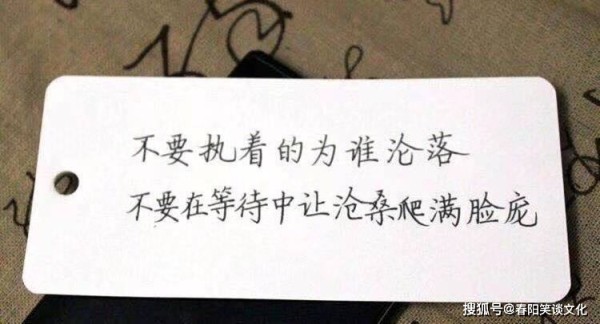 不要执着的为谁沦落
不要在等待中让沧桑爬满脸庞
搜狐号@春阳笑谈文化